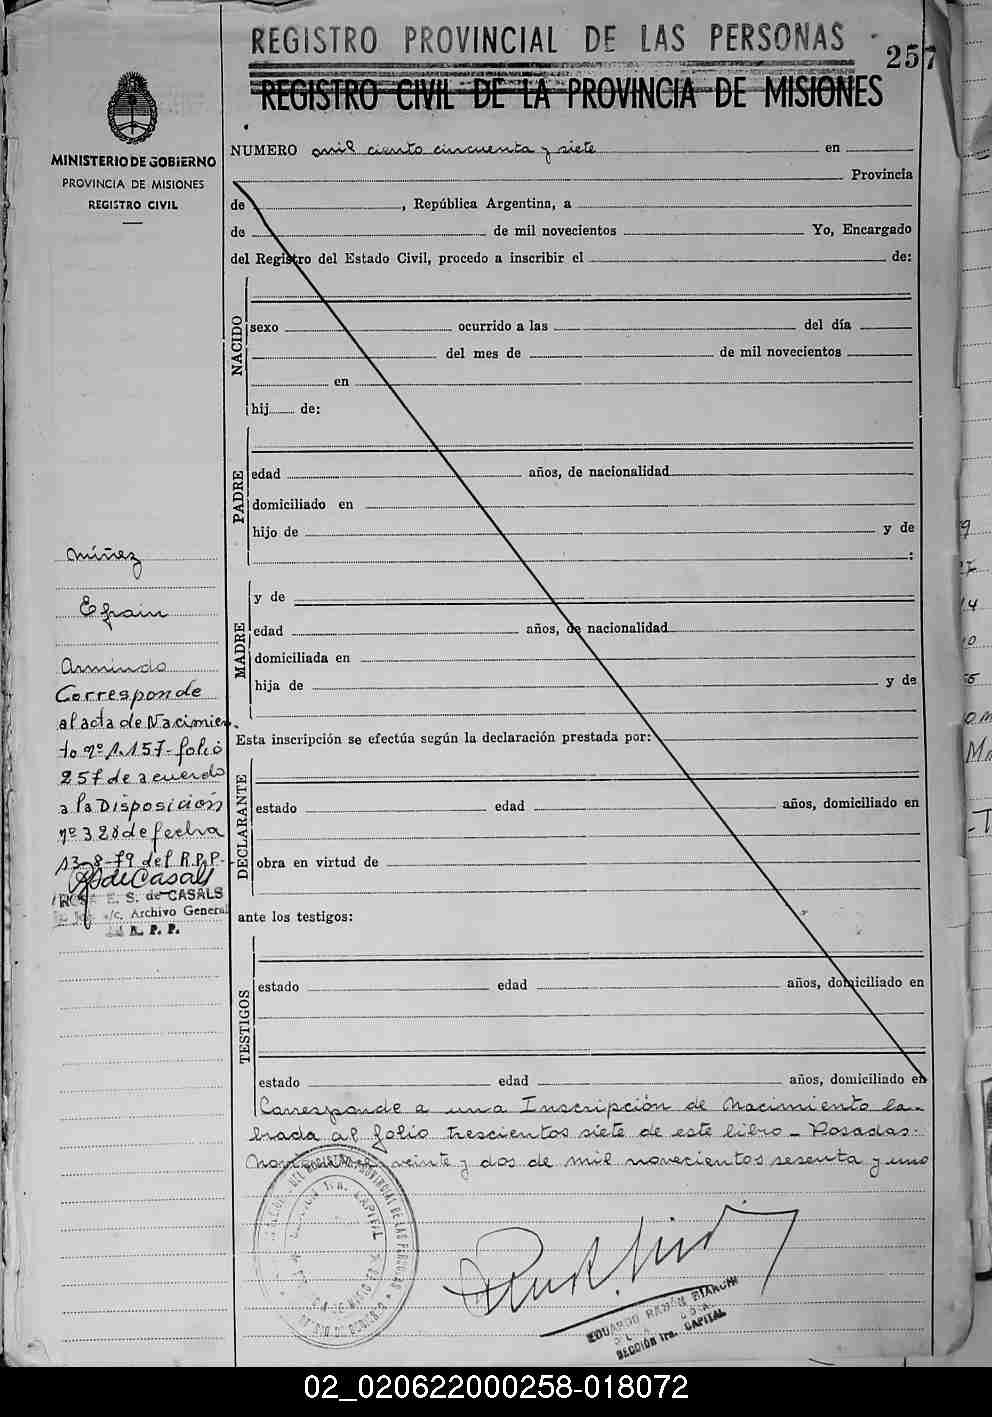 REGISTRO PROVINCIAL DE LAS PERSONAS
257
REGISTRO CIVIL DE LA PROVINCIA DE MISIONES
MINISTERIO DE GOBIERNO
PROVINCIA DE MISIONES
REGISTRO CIVIL
NUMERO mil ciento cincuenta y siete en
Provincia
de , República Argentina, a
de de mil novecientos Yo, Encargado
del Registro del Estado Civil, procedo a inscribir el de:
NACIDO
sexo ocurrido a las del día
del mes de de mil novecientos
en
hij de:
PADRE
edad años, de nacionalidad
domiciliado en
hijo de y de
:
MADRE
y de
edad años, de nacionalidad
domiciliada en
hija de y de
Esta inscripción se efectúa según la declaración prestada por:
DECLARANTE
estado edad años, domiciliado en
obra en virtud de
ante los testigos:
TESTIGOS
estado edad años, domiciliado en
estado edad años, domiciliado en
Corresponde a una Inscripción de Nacimiento la-
brada al folio trescientos siete de este libro - Posadas.
veinte y dos de mil novecientos sesenta y uno
Núñez
Efrain
Armindo
Corresponde
al acta de Nacimien-
to nº 1.157 folio
257 de acuerdo
a la Disposición
nº 328 de fecha
13-8-79 del R.P.P.
E. S. de CASALS
a/c. Archivo General
R. P. P.
EDUARDO RAMÓN BIANCHI
SECCIÓN 1ra. CAPITAL
02_020622000258-018072